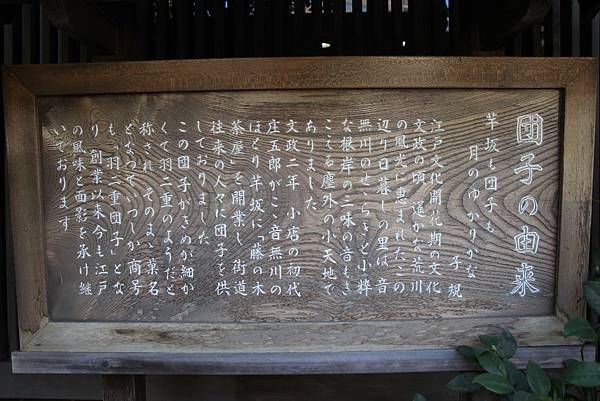 団子の由来
芋坂も団子も
月のゆかりかな
子規
江戸文化開花期の文化
文政の頃、遥かな荒川
の風光に恵まれたこの
辺り日暮しの里は、音
無川のせゝらぎと小粋
な根岸の三味の音もき
こえる塵外の小天地で
ありました
文政二年 小店の初代
庄五郎がこゝ音無川の
ほとり芋坂に「藤の木
茶屋」を開業し 街道
往来の人々に団子を供
しておりました
この団子がきめが細か
くて羽二重のようだと
称され そのまゝ菓名
となって いつしか商号
も「羽二重団子」とな
り 創業以来今も江戸
の風味と面影を承け継
いでおります